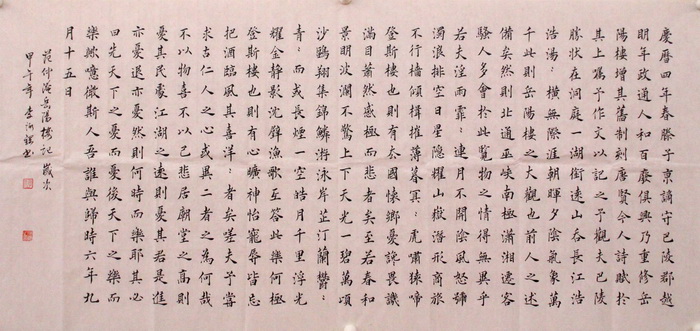 慶曆四年春滕子京謫守巴陵郡越
明年政通人和百廢俱興乃重修岳
陽樓增其舊制刻唐賢今人詩賦於
其上屬予作文以記之予觀夫巴陵
勝狀在洞庭一湖銜遠山吞長江浩
浩湯〻橫無際涯朝暉夕陰氣象萬
千此則岳陽樓之大觀也前人之述
備矣然則北通巫峽南極瀟湘遷客
騷人多會於此覽物之情得無異乎
若夫淫雨霏〻連月不開陰風怒號
濁浪排空日星隱耀山嶽潛形商旅
不行檣傾楫摧薄暮冥〻虎嘯猿啼
登斯樓也則有去國懷鄉憂讒畏譏
滿目蕭然感極而悲者矣至若春和
景明波瀾不驚上下天光一碧萬頃
沙鷗翔集錦鱗游泳岸芷汀蘭鬱〻
青〻而或長煙一空皓月千里浮光
耀金靜影沉璧漁歌互答此樂何極
登斯樓也則有心曠神怡寵辱皆忘
把酒臨風其喜洋〻者矣嗟夫予嘗
求古仁人之心或異二者之為何哉
不以物喜不以己悲居廟堂之高則
憂其民處江湖之遠則憂其君是進
亦憂退亦憂然則何時而樂耶其必
曰先天下之憂而憂後天下之樂而
樂歟噫微斯人吾誰與歸時六年九
月十五日
范仲淹岳陽樓記 歲次
甲午年 李 書